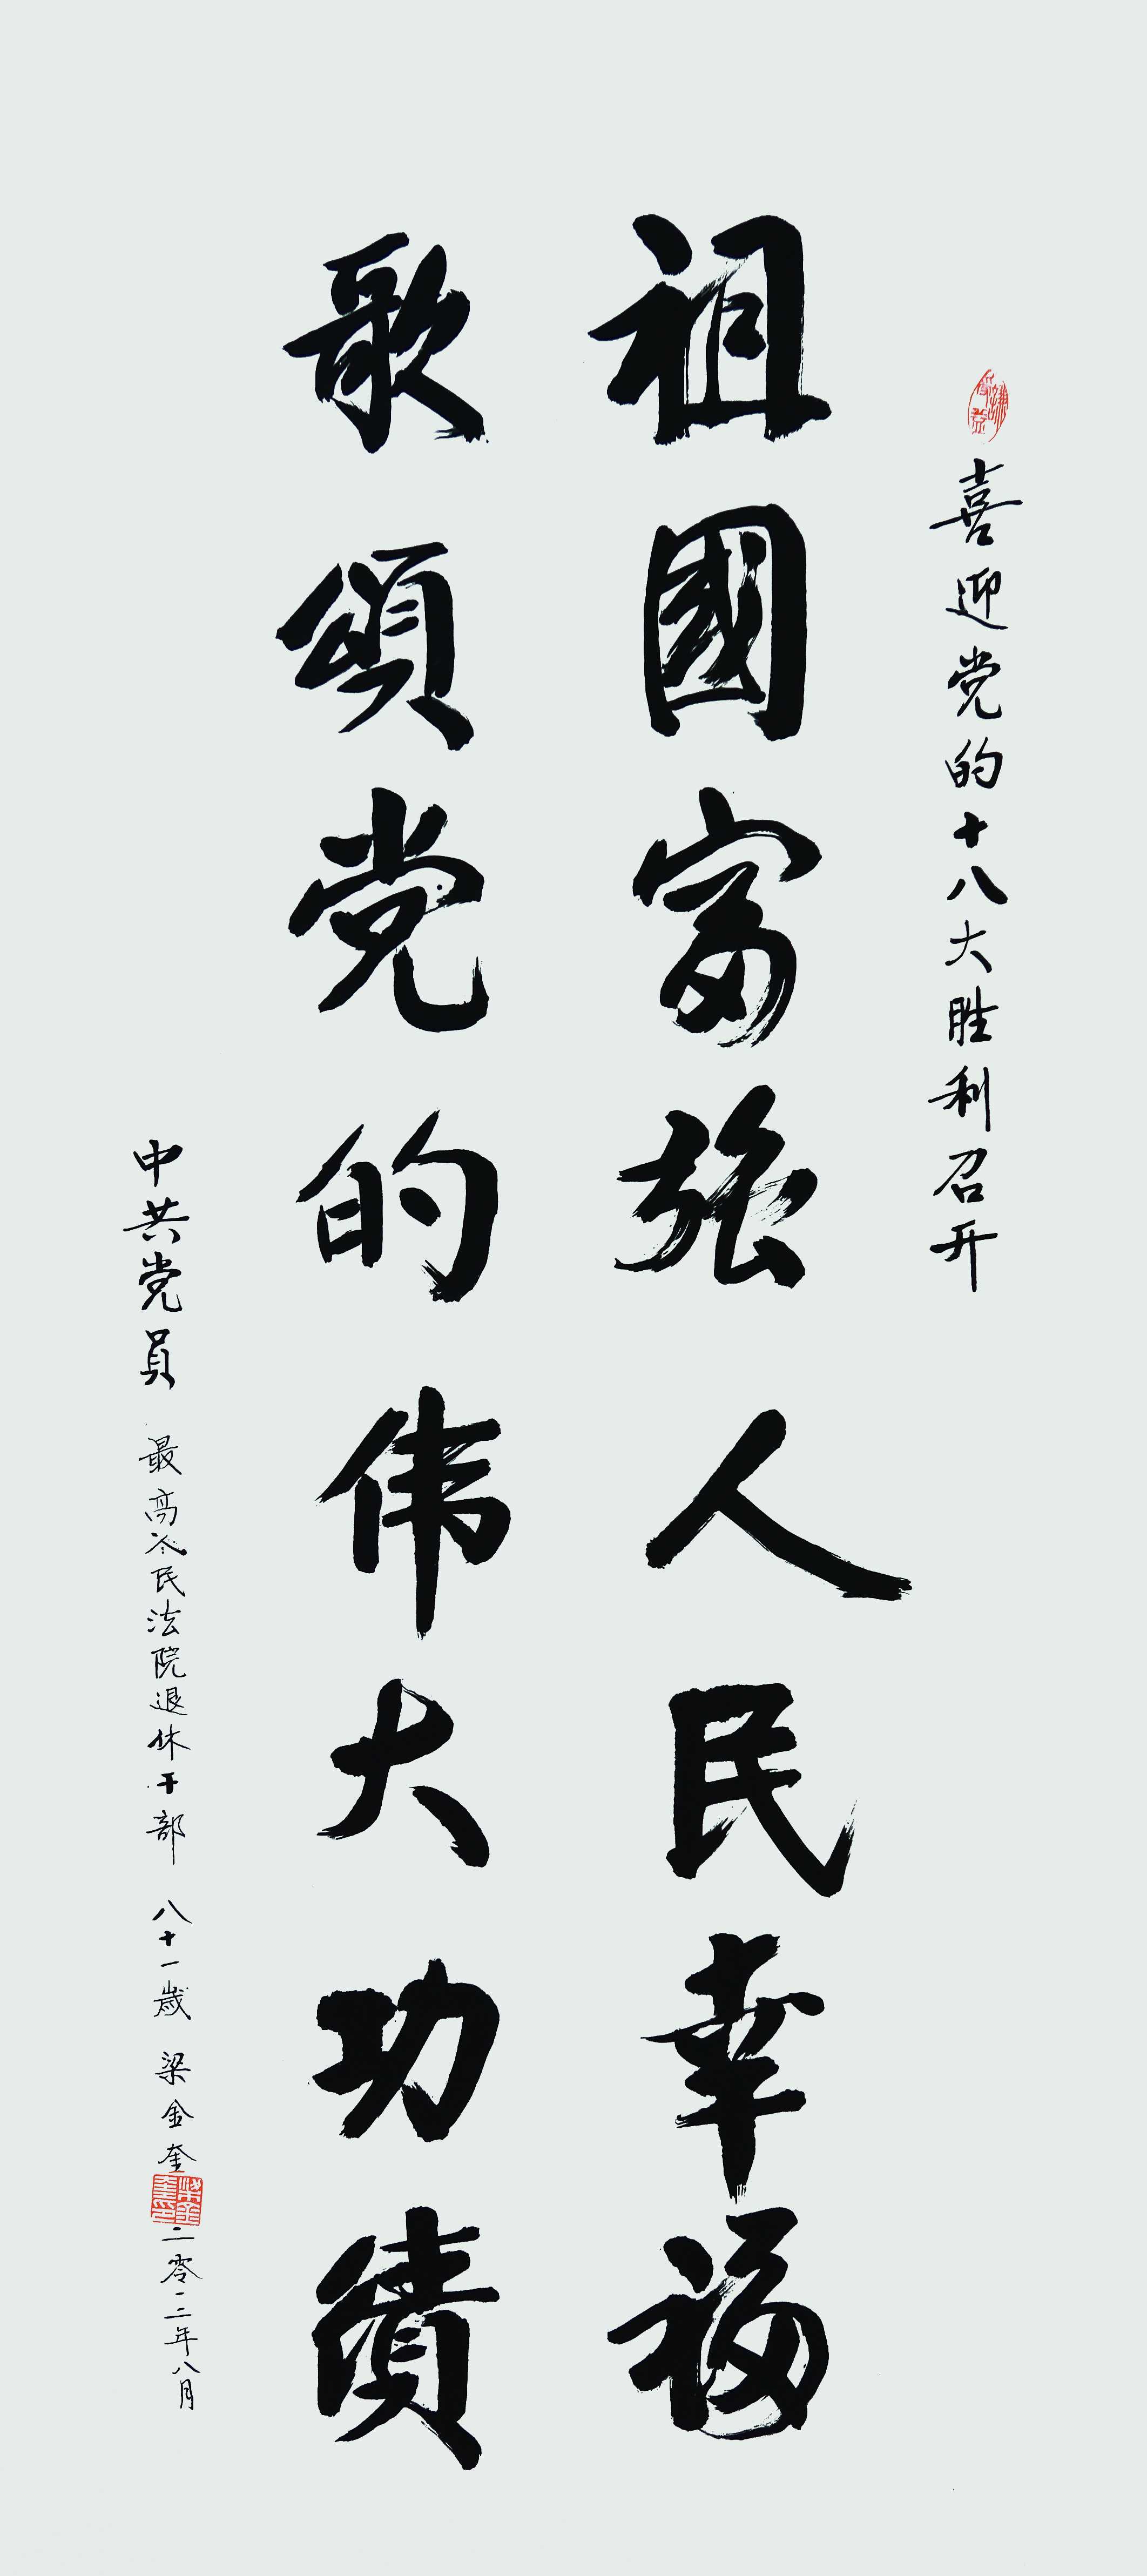 喜迎党的十八大胜利召开
祖國富强人民幸福
歌頌党的伟大功績
中共党員 最高人民法院退休干部 八十一歲 梁金奎
二零一二年八月